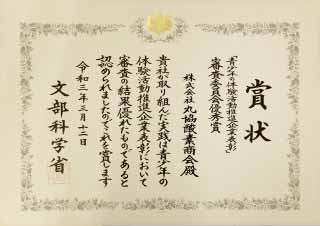 賞状
「青少年の体験活動推進企業表彰」
審査委員会優秀賞
株式会社丸協酸素商会殿
貴社が取り組んだ実践は青少年の
体験活動推進企業表彰において
審査の結果優れたものであると
認められましたのでこれを賞します
令和三年三月十二日
文部科学省